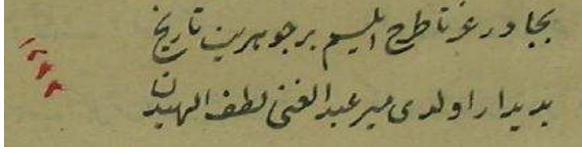 بجا در غرنا طرح ایلیسم بر جوهرین تاریخ
بدیدار اولدی میر عبد الغنی لطف الهیدن